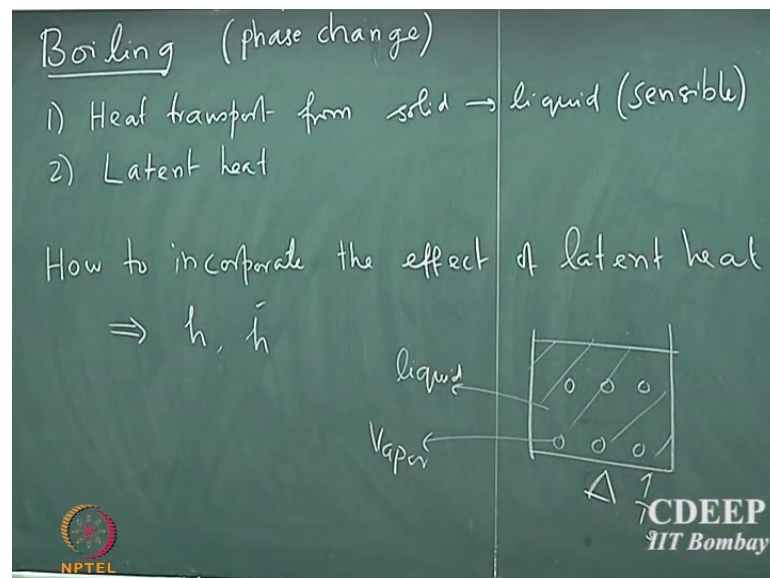 Boiling (phase change)
1) Heat transport from solid → liquid (sensible)
2) Latent heat
How to incorporate the effect of latent heat
⇒ h, h̄
liquid
Vapor
CDEEP
IIT Bombay
NPTEL